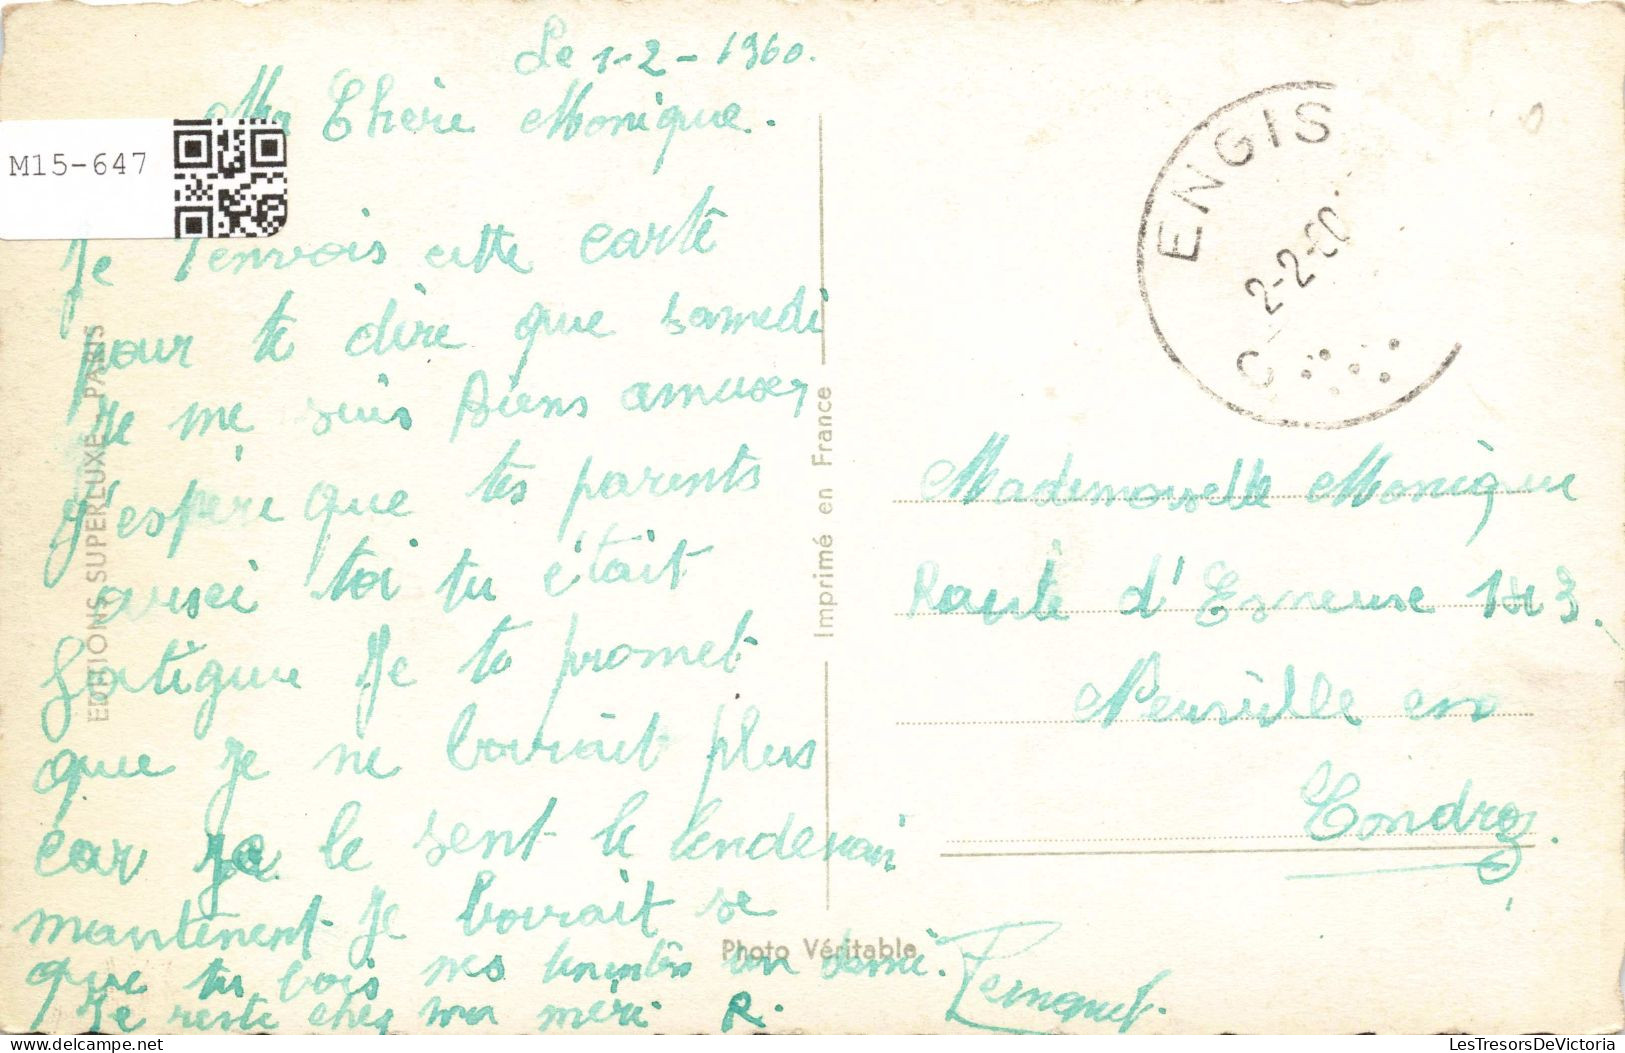 Le 1-2-1960.
Ma Chère Monique.
M15-647
Je t'envois cette carte
pour te dire que samedi
Je me suis biens amuser
j'espère que tes parents
aussi toi tu était
fatigue Je te promet
que je ne boirait plus
car je le sent le lendemain
maintenent Je boirait se
que tu bois mes un demi.
Je reste chez ma mère R.
EDITIONS SUPERLUXE - PARIS
Imprimé en France
Photo Véritable
ENGIS
2-2-60
Mademoiselle Monique
Route d'Esneuse 143.
Neuville en
Condroz.
LesTresorsDeVictoria
delcampe.net